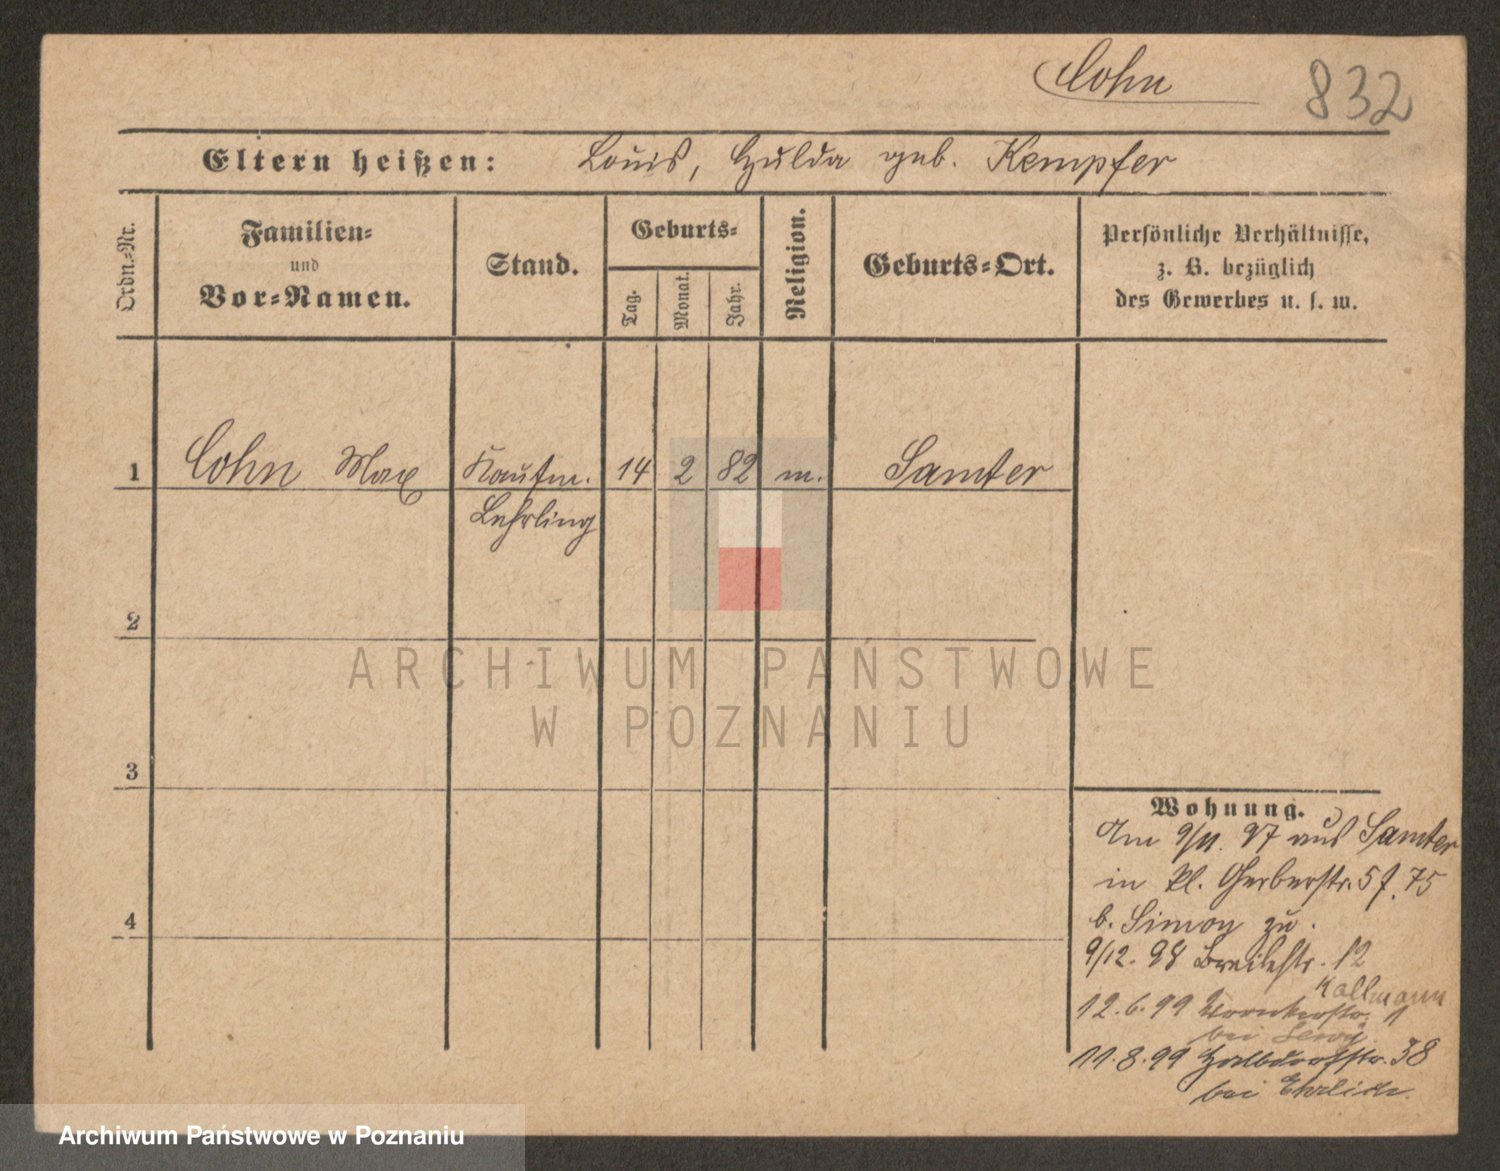 Cohn 832
Eltern heißen: Louis, Hulda geb. Kempfer
Ordn.-Nr.
Familien-
und
Vor-Namen.
Stand.
Geburts-
Tag.
Monat.
Jahr.
Religion.
Geburts-Ort.
Persönliche Verhältnisse,
z. B. bezüglich
des Gewerbes u. s. w.
1 Cohn Max Kaufm. 14 2 82 m. Samter
Lehrling
2
3
4
Wohnung.
Am 9/11. 97 aus Samter
in kl. Gerberstr. 5 f. 75
b. Simon zu.
9/12. 98 Breitestr. 12
Kallmann
12.6.99 1
bei Lewy
11.8.99 Halbdorfstr. 38
bei Ehrlich.
ARCHIWUM PAŃSTWOWE
W POZNANIU
Archiwum Państwowe w Poznaniu